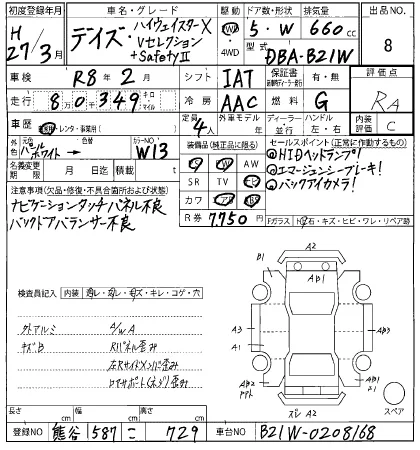 初度登録年月 車名・グレード 駆動 ドア数・形状 排気量 出品NO.
H 27/3月 デイズ・ハイウェイスターX Vセレクション +SafetyⅡ 2WD 4WD 5・W 660cc 8
型式 DBA-B21W
車検 R8年2月 シフト IAT 保証書 有・無 評価点 RA
走行 80349 キロ マイル 冷房 AAC 燃料 G 内装評価 C
車歴 自家用・レンタ・事業用( ) 定員 4人 外車モデル 年 ディーラー 並行 ハンドル 左・右
外色 元色 パールホワイト → 色替 カラーNO. W13
装備品(純正品に限る) セールスポイント(正常に作動するもの)
名義変更期限 月 日迄 積載 t
PS PW AW
SR TV ナビ
カワ エアB ABS
R券 7,750円
①HIDヘッドランプ!
②エマージェンシーブレーキ!
③バックアイカメラ!
注意事項(欠品・修復・不具合箇所および状態)
ナビゲーションタッチパネル不良
バックドアバランサー不良
Fガラス 石・キズ・ヒビ・ワレ・リペア跡
検査員記入 内装 スレ・キズ・キレ・コゲ・穴
外アルミ A/WA
キズB Rパネル歪み
左Rサイドメンバ歪み
ロアサポート(ネジ)歪み
A2
B1 AB1
A3 AB3
A1
AB2 AB1 AB1
スレ A2
スペア
長さ cm 幅 cm 高さ cm
登録NO 熊谷 587 こ 729 車台NO B21W-0208168